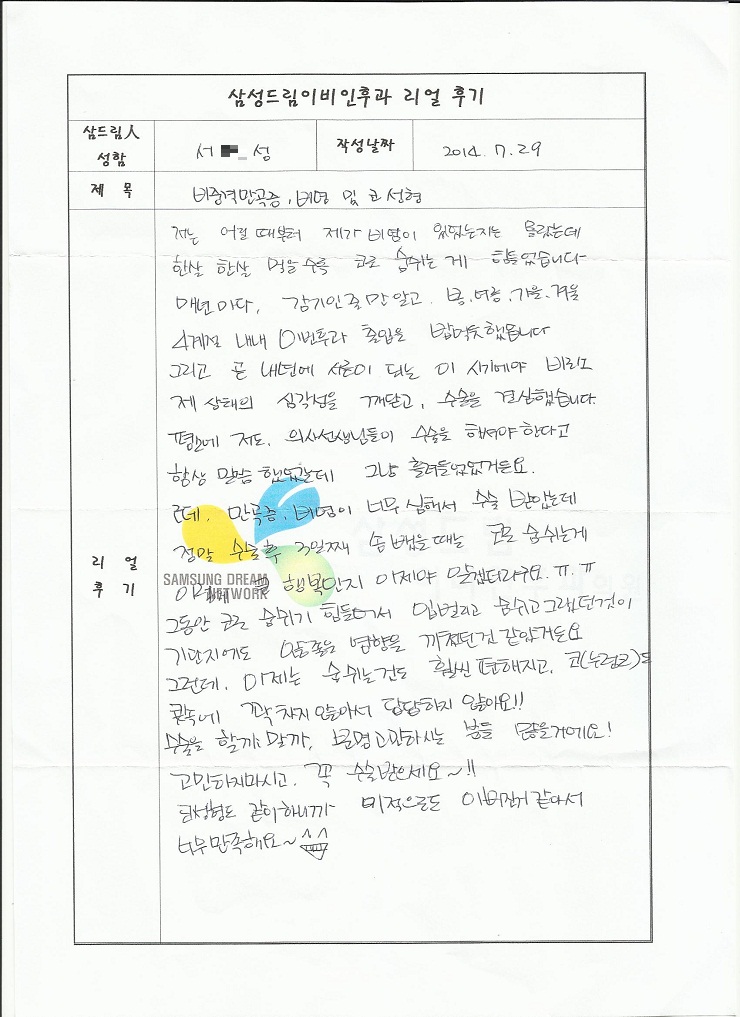 삼성드림이비인후과 리얼 후기
삼드림人 성함
서 성
작성날짜
2014. 7. 29
제 목
비중격만곡증, 비염 및 코 성형
리 얼 후 기
저는 어릴 때부터 제가 비염이 있었는지는 몰랐는데
한살 한살 먹을수록 코로 숨쉬는 게 힘들었습니다
매년마다, 감기인줄만 알고. 봄, 여름, 가을, 겨울
4계절 내내 이비인후과 출입을 밥먹듯했습니다
그리고 곧 내년에 서른이 되는 이 시기에야 비로소
제 상태의 심각성을 깨닫고, 수술을 결심했습니다.
평소에 저도, 의사선생님들이 수술을 해셔야 한다고
항상 말씀 했었는데 그냥 흘려들었었거든요.
근데, 만곡증, 비염이 너무 심해서 수술 받았는데
정말 수술후 3일째 솜 뺐을때는 코로 숨쉬는게
이렇게 행복한지 이제야 알겠더라구요. ㅠ.ㅠ
그동안 코로 숨쉬기 힘들어서 입벌리고 숨쉬고 그랬던것이
기관지에도 안좋은 영향을 끼쳤던건 같았거든요
그런데, 이제는 숨쉬는것도 훨씬 편해지고, 코(누런코)도
콧속에 꽉 차지 않아서 답답하지 않아요!!
수술을 할까, 말까, 분명 고민하시는 분들 많을거에요!
고민하지마시고, 꼭 수술받으세요~!!
코성형도 같이하니까 미적으로도 이뻐진거 같아서
너무만족해요~^^
SAMSUNG DREAM
NETWORK
삼성드림